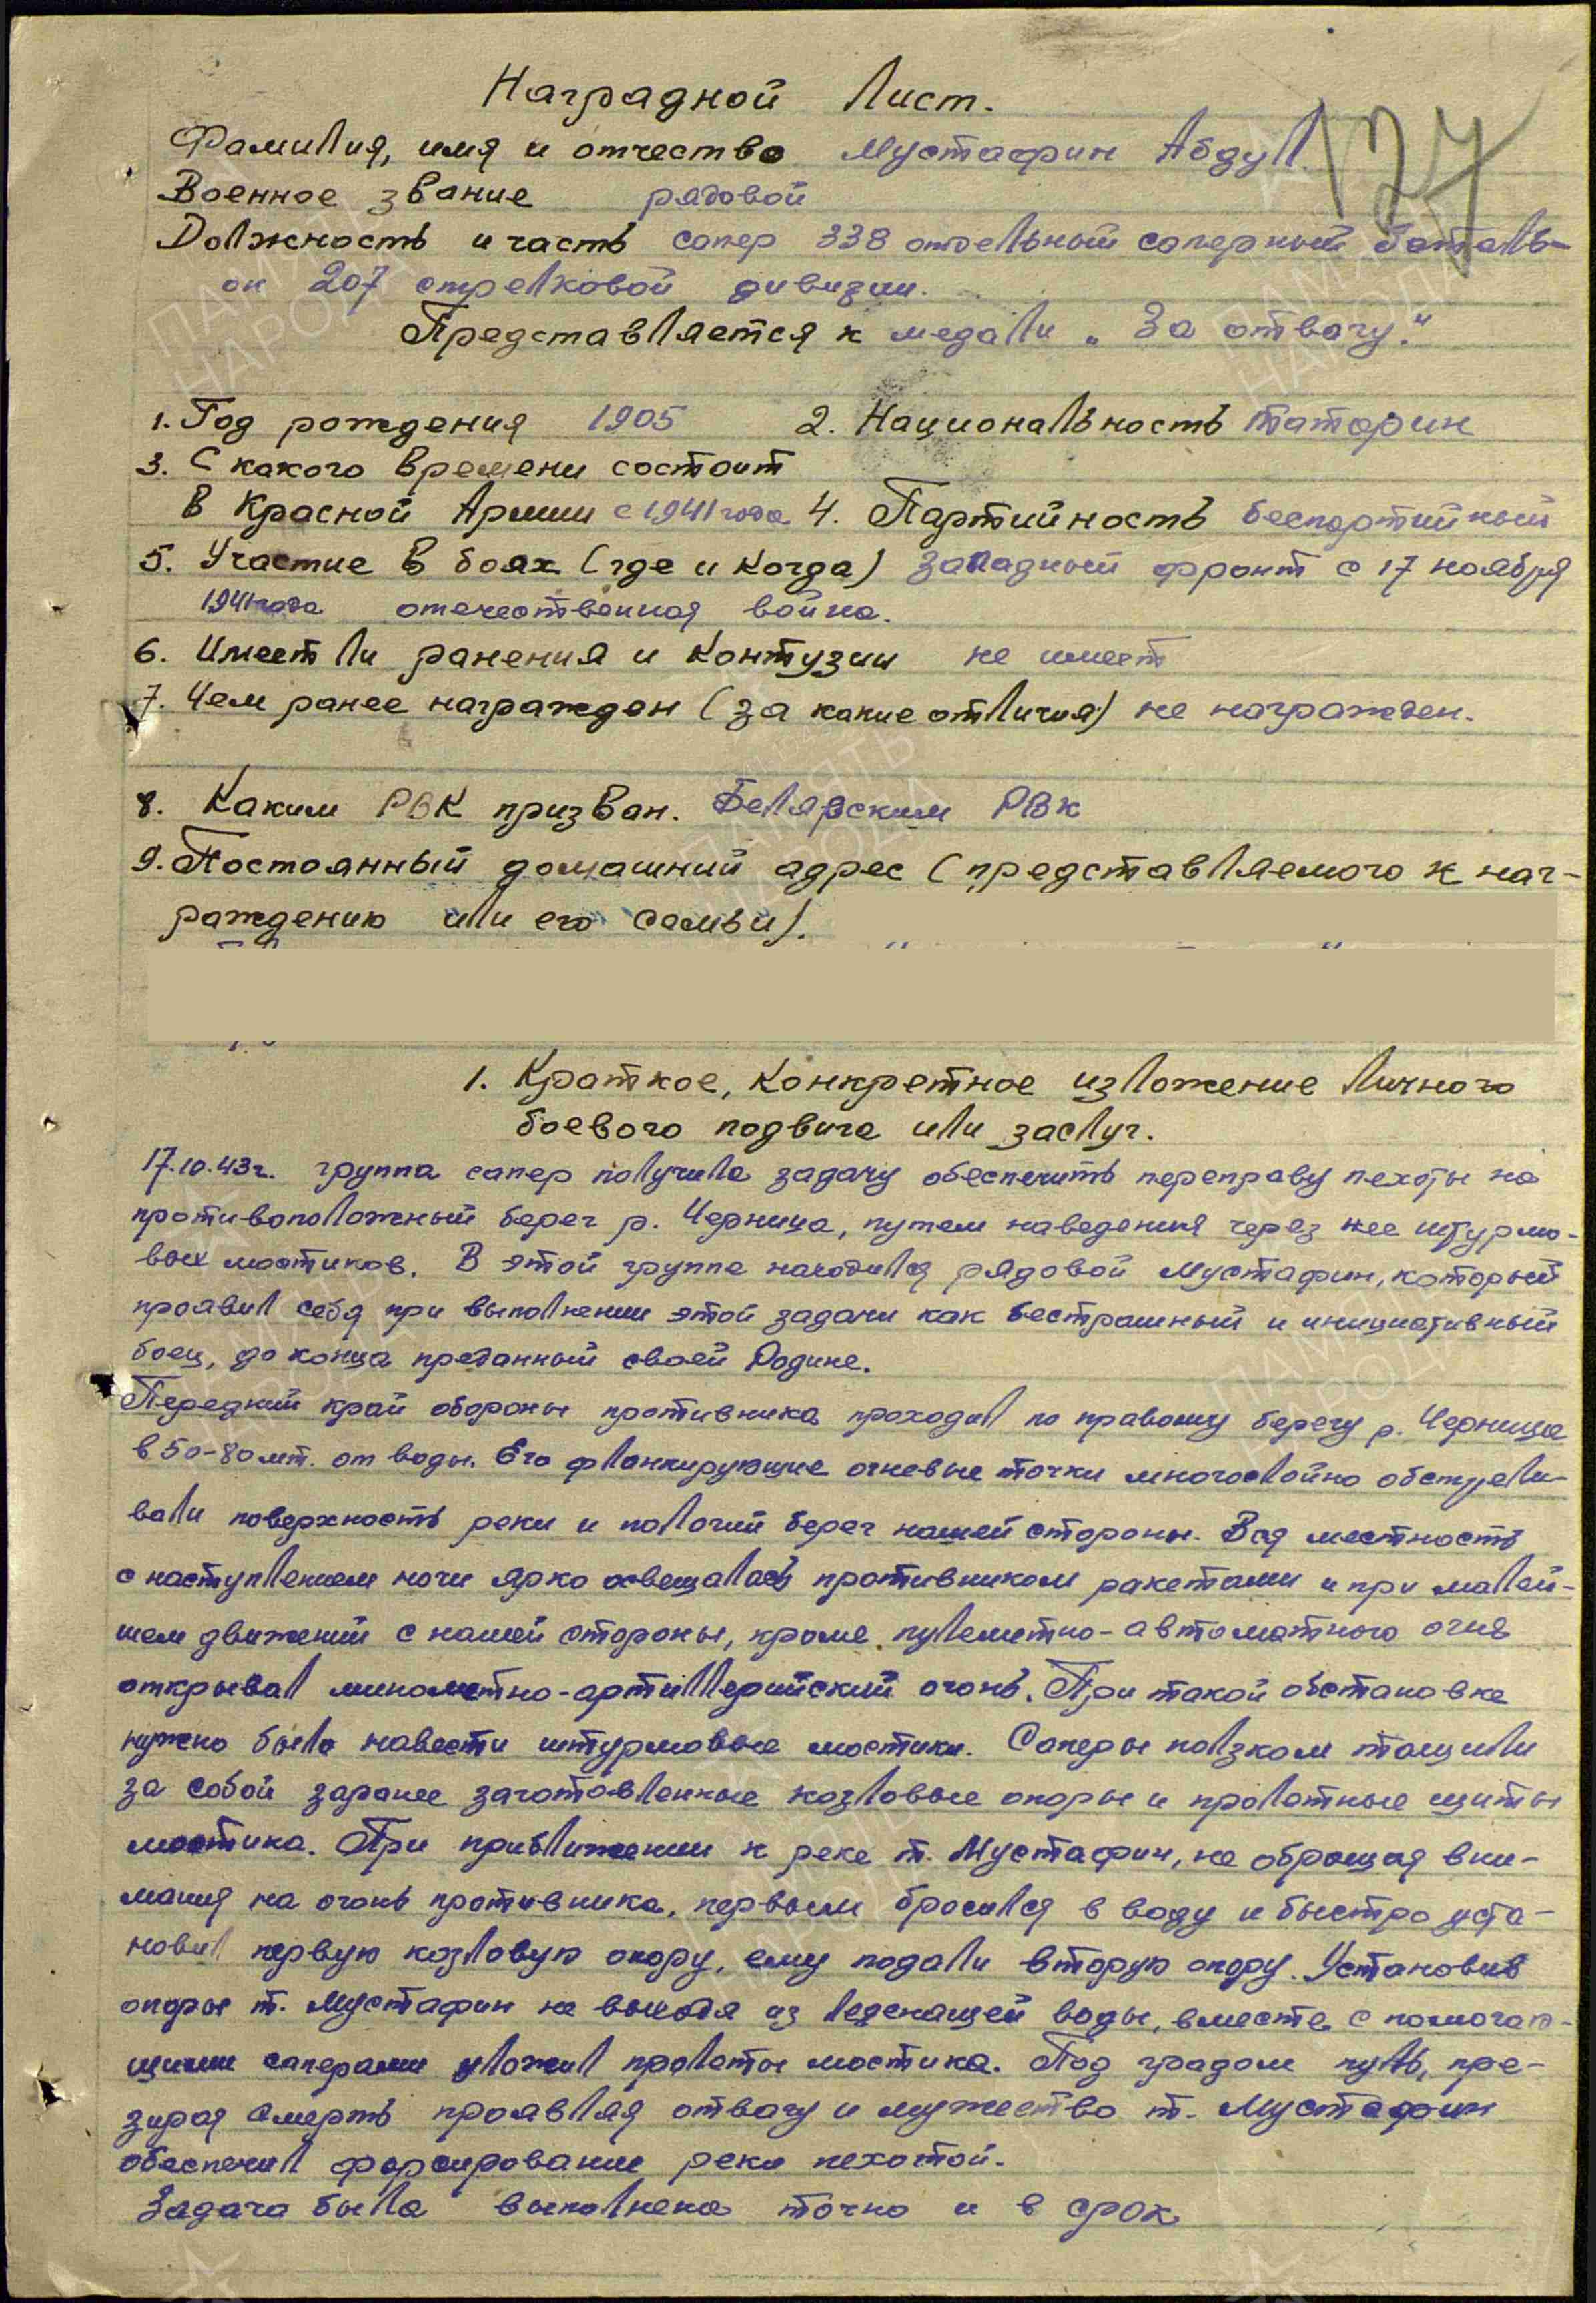 Наградной Лист.
127
Фамилия, имя и отчество Мустафин Абдул.
Военное звание рядовой
Должность и часть сапер 338 отдельный саперный баталь-
он 207 стрелковой дивизии.
Представляется к медали „За отвагу."
1. Год рождения 1905 2. Национальность татарин
3. С какого времени состоит
в Красной Армии с 1941 года 4. Партийность беспартийный
5. Участие в боях (где и когда) Западный фронт с 17 ноября
1941 года отечественная война.
6. Имеет ли ранения и контузии не имеет
7. Чем ранее награжден (за какие отличия) не награжден.
8. Каким РВК призван. Белярским РВК
9. Постоянный домашний адрес (представляемого к наг-
раждению или его семьи).
1. Краткое, конкретное изложение личного
боевого подвига или заслуг.
17.10.43г. группа сапер получила задачу обеспечить переправу пехоты на
противоположный берег р. Черница, путем наведения через нее штурмо-
вых мостиков. В этой группе находился рядовой Мустафин, который
проявил себя при выполнении этой задачи как бестрашный и инициативный
боец, до конца преданный своей Родине.
Передний край обороны противника проходил по правому берегу р. Черница
в 50-80 мт. от воды. Его фланкирующие огневые точки многослойно обстрели-
вали поверхность реки и пологий берег нашей стороны. Вся местность
с наступлением ночи ярко освещалась противником ракетами и при малей-
шем движений с нашей стороны, кроме пулеметно-автоматного огня
открывал минометно-артиллерийский огонь. При такой обстановке
нужно было навести штурмовые мостики. Саперы ползком тащили
за собой заранее заготовленные козловые опоры и пролетные щиты
мостика. При приближении к реке т. Мустафин, не обращая вни-
мания на огонь противника, первым бросился в воду и быстро уста-
новил первую козловую опору, ему подали вторую опору. Установив
опоры т. Мустафин не выходя из леденящей воды, вместе с помогаю-
щими саперами уложил пролеты мостика. Под градом пуль, пре-
зирая смерть проявляя отвагу и мужество т. Мустафин
обеспечил форсирование реки пехотой.
Задача была выполнена точно и в срок
ПАМЯТЬ
НАРОДА